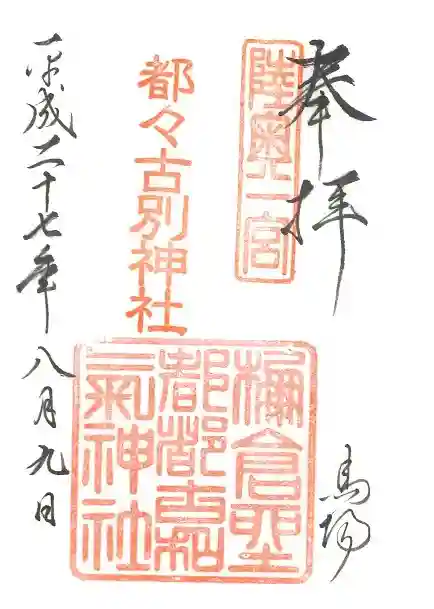 奉拝
陸奥一宮
馬場
都々古別神社
平成二十七年八月九日